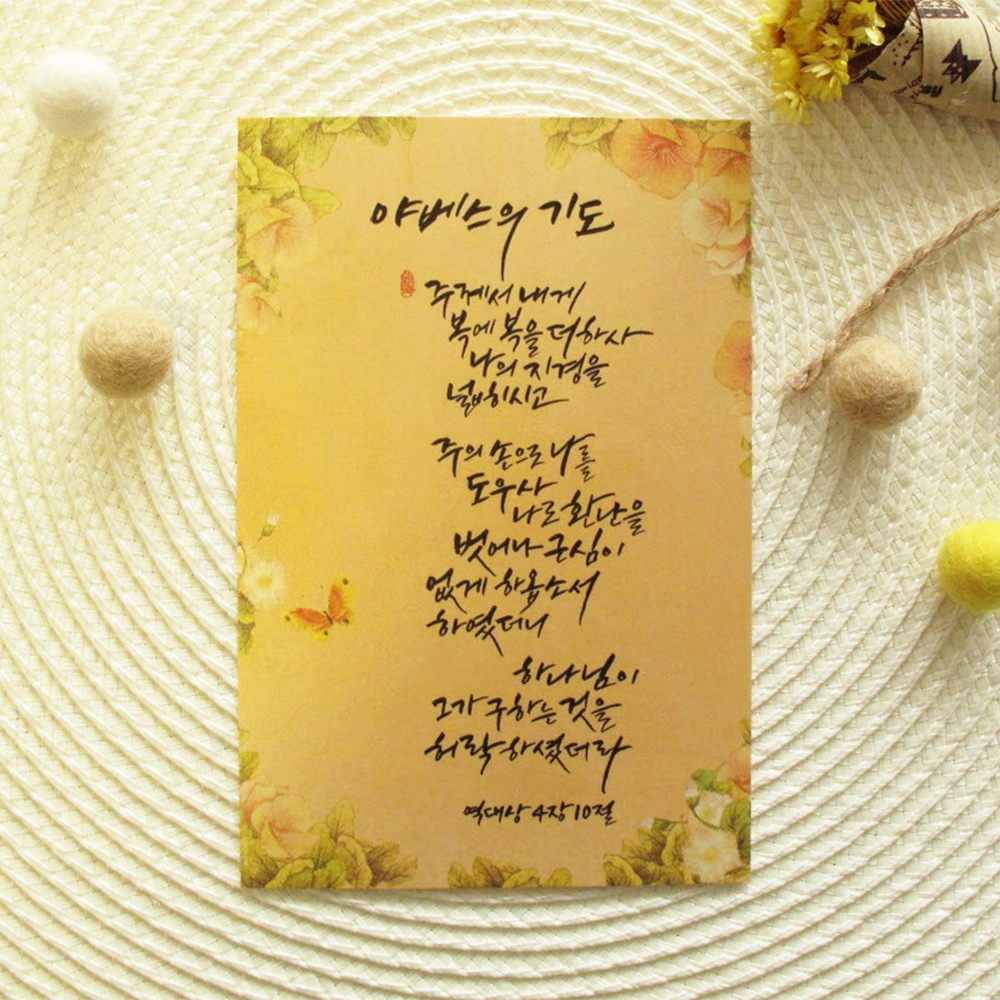 야베스의 기도
주께서 내게
복에 복을 더하사
나의 지경을
넓히시고
주의 손으로 나를
도우사
나로 환난을
벗어나 근심이
없게 하옵소서
하였더니
하나님이
그가 구하는 것을
허락하셨더라
역대상 4장 10절